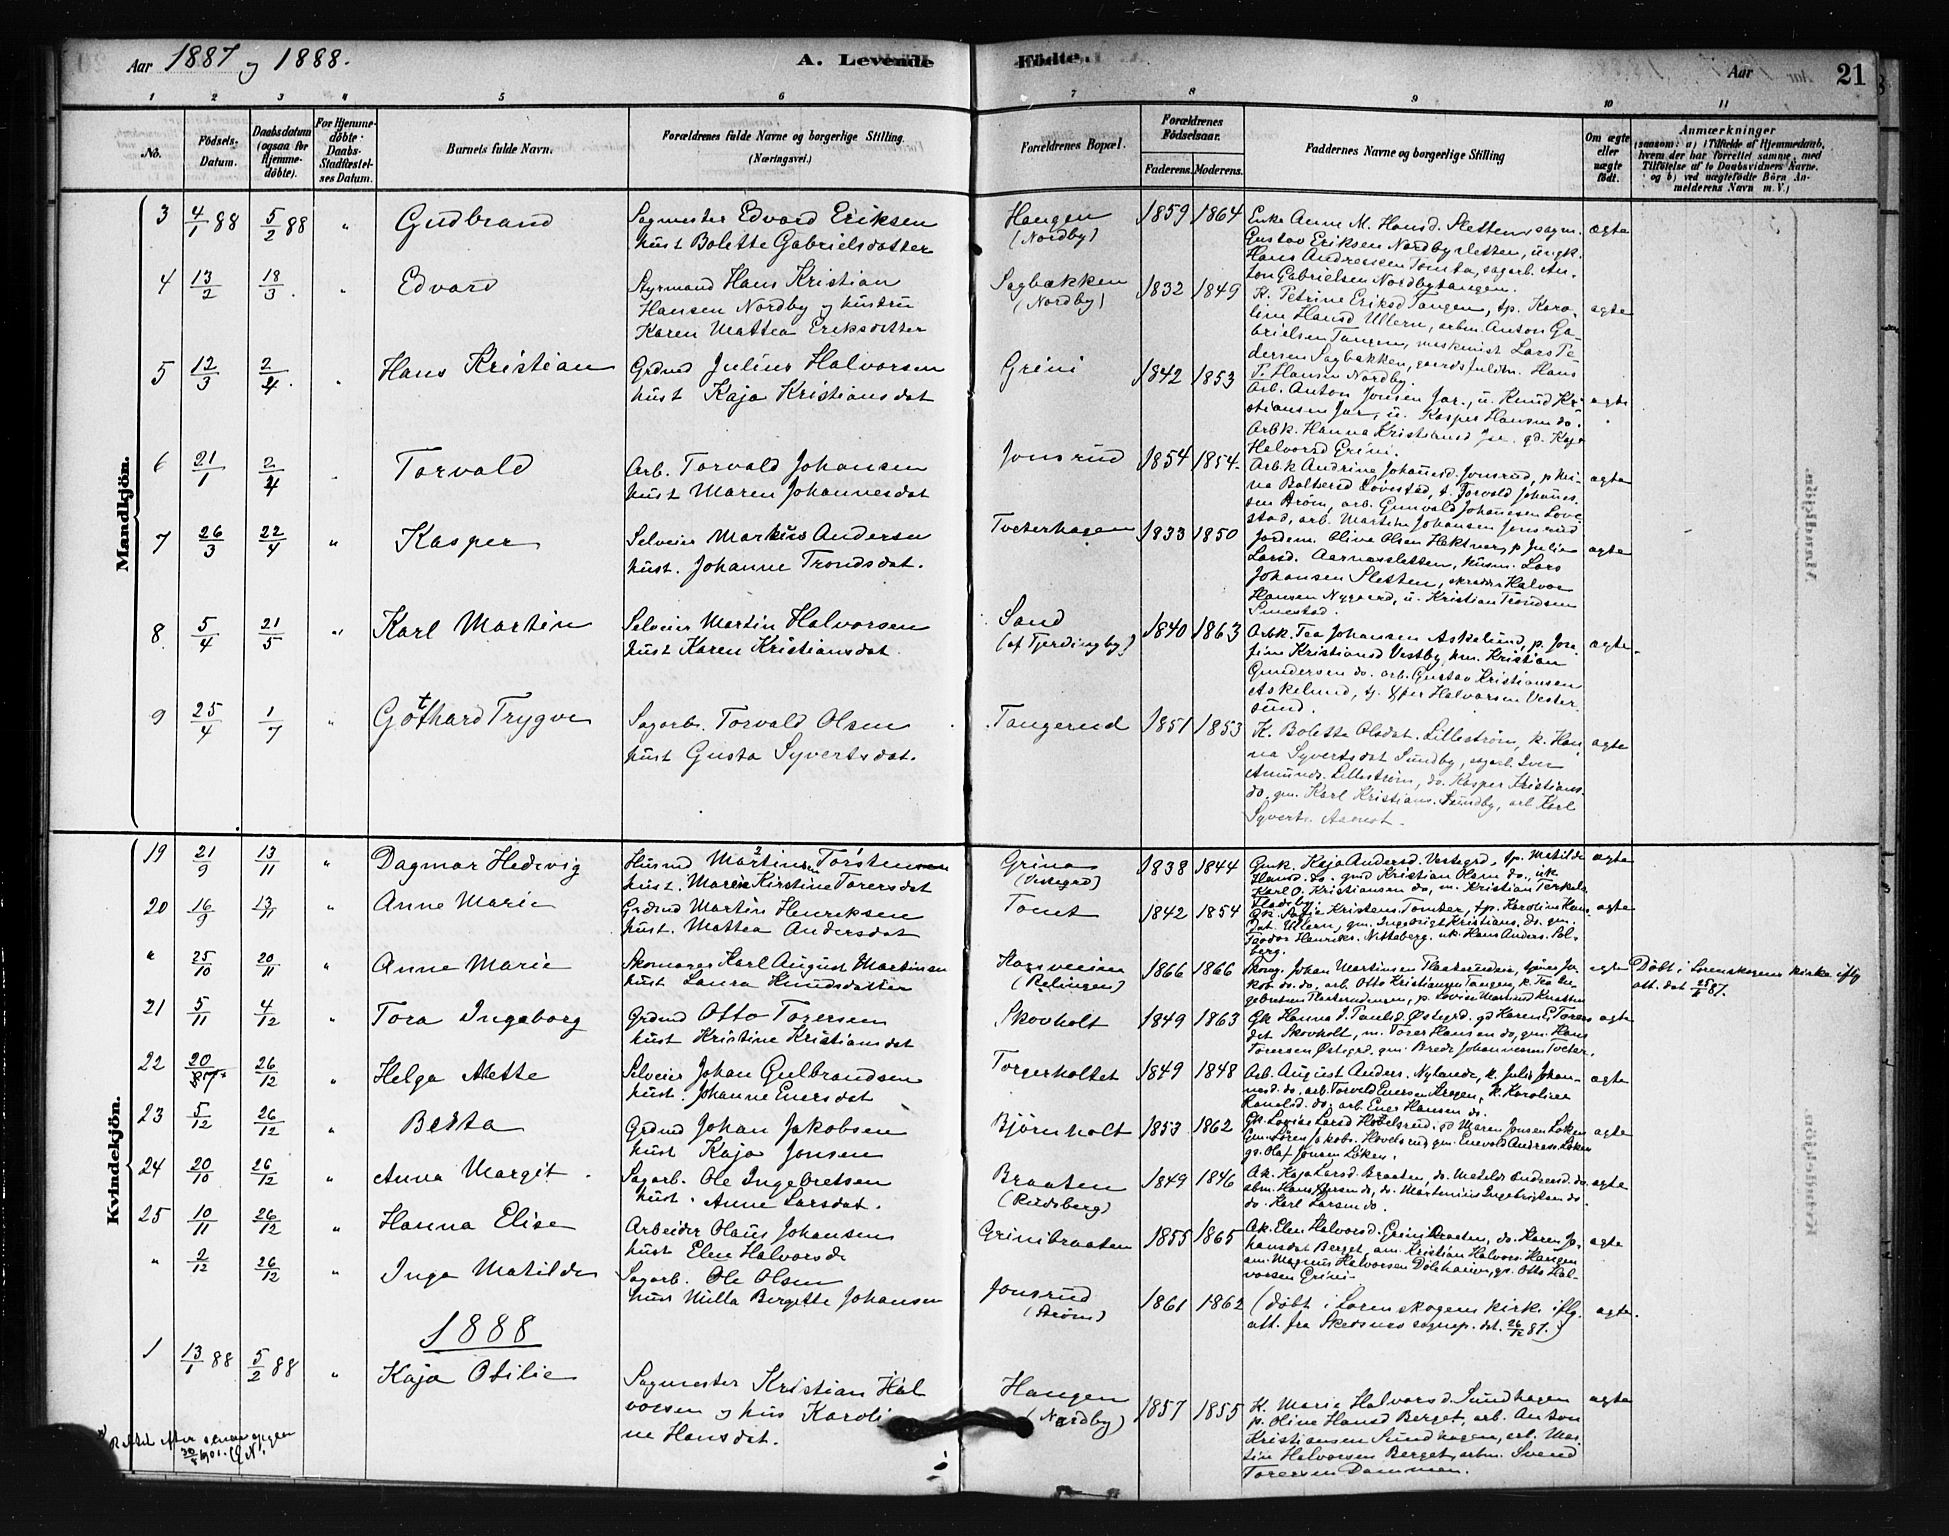 Aar 1887 og 1888.
A. Levende
Födte.
Aar
21
1 2 3 4 5 6 7 8 9 10 11
No.
Födsels-Datum.
Daabsdatum (ogsaa for Hjemmedöbte).
For Hjemmedöbte: Daabs-Stadfæstelses Datum.
Barnets fulde Navn.
Forældrenes fulde Navne og borgerlige Stilling.
(Næringsvei.)
Forældrenes Bopæl.
Forældrenes Födselsaar.
Faderens. Moderens.
Faddernes Navne og borgerlige Stilling
Om ægte eller uægte födt.
Anmærkninger
(saasom: a) i Tilfælde af Hjemmedaab, hvem der har forrettet samme, med Tilföielse af to Daabsvidners Navne. og b) ved uægtefödte Börn Anmelderens Navn m. V.)
Mandkjön.
3 4/1 88 5/2 88 " Gudbrand
Sagmester Edvard Eriksen
hust Bolette Gabrielsdatter
Haugen
(Nordby)
1859 1864
Enke Anne M. Hansd. Sletten, sagm.
Gustav Eriksen Nordbysletten, ungk.
Hans Andreasen Tomta, sagarb. An-
ton Gabrielsen Nordbytangen.
ægte
4 13/2 18/3 " Edvard
Styrmand Hans Kristian
Hansen Nordby og hustru
Karen Mattea Eriksdatter
Sagbakken
(Nordby)
1832 1849
K. Petrine Eriksd Tangen, tp. Karo-
line Hansd Ullern, arbm. Anton Ga-
brielsen Tangen, maskinist Lars Pe-
dersen Sagbakken, gaardsfuldm. Hans
P. Hansen Nordby.
ægte
5 12/3 2/4. " Hans Kristian
Grdmd Julius Halvorsen
hust Kaja Kristiansdat
Grini
1842 1853
Arb. Anton Jonsen Jar., u. Knud Kri-
stiansen Jar, u. Kasper Hansen do.
Arbk. Hanna Kristiansd Jar. gd. Kaja
Halvorsd Grini.
ægte
6 21/1 2/4 " Torvald
Arb. Torvald Johansen
hust Maren Johannesdat
Jonsrud
1854 1854
Arbk Andrine Johannesd. Jonsrud, p. Kri-
na Baltersd Løvestad, t. Torvald Johans-
sen Strøm, arb. Gunvald Johansen Løve-
stad, arb. Martin Johansen Jonsrud
ægte
7 26/3 22/4 " Kasper
Selveier Markus Andersen
hust. Johanne Trondsdat.
Tveterhagen
1833 1850
Jordem. Olive Olsen Hektner, p Julie
Larsd. Aarnæssletten, husm. Lars
Johansen Sletten, skrædder Halvor
Hansen Nygaard, u. Kristian Trondsen
Smestad.
ægte
8 5/4 21/5 " Karl Martin
Selveier Martin Halvorsen
hust Karen Kristiansdat.
Sand
(af Fjerdingby)
1840 1863
Arbk. Tea Johansen Askelund, p. Jose-
fine Kristiansd Vestby, hm. Kristian
Gundersen do. arb. Gustav Kristiansen
Askelund, tj. Halvorsen Vester-
sund.
ægte.
9 25/4 1/7 " Gotthard Trygve
Sagarb. Torvald Olsen
hust Gusta Syvertsdat.
Tangerud
1851 1853
K. Bolette Olsdat. Lillestrøm, k. Han-
na Syvertsdat Sundby, sagarb. Iver
Amunds. Lillestrøm, do. Kasper Kristians.
do. gm. Karl Kristians. Sundby, arb Karl
Syverts.
ægte
Kvindekjön.
19 21/9 13/11 " Dagmar Hedevig
Husmd Martinus Torstensen
hust. Maren Kirstine Torersdat
Grina
(Vestgrd)
1838 1844
Gmk. Kaja Andersd. Vestegrd. tp. Matilde
Hansd. do. gmd Kristian Olsen do., uk
Karl O. Kristiansen do, m. Kristian Terkels.
Fladeby.
ægte
20 16/9 13/11 " Anne Marie
Grdmd Martin Henriksen
hust. Mattea Andersdat
Tomt
1842 1854
Kristens. Tomter, tp. Karoline Hans-
dat. Ullern, gm. Ingebrigt Kristians. do. gm.
Teodor Henriks. Nitteberg. uk. Hans Anders. Sol-
berg.
ægte
" 25/10 20/11 " Anne Marie
Skomager Karl August Martinsen
hust Laura Knudsdatter
(Relingen)
1866 1866
Skomg. Johan Martinsen do. do, arb. Otto Kristiansen Tangen, k. Tea
ægte
Døbt i Lørenskogens kirke iflg
att. dat 87.
21 5/11 4/12 " Tora Ingeborg
Grdmd Otto Torersen
hust Kristine Kristiansdat
Skovholt
1849 1863
Gk Hanna I. Paulsd. Østegrd. gd Karen E. Torers-
dat Skovholt, m. Torer Hansen do, gm. Hans
Torersen Østegrd. gm. Brede Johannesen Tveter.
ægte
22 20/ 26/12 " Helga Mette
Selveier Johan Gulbrandsen
hust. Johanne Enersdat
Torgerholtet
1849 1848
Arb. August Anders. Nylænde, k. Julie Johan-
nesd. do, arb Torvald Enersen Kragen, k. Karoline
do. arb. Ener Hansen do.
ægte
23 5/12 26/12 " Berta
Grdmd Johan Jakobsen
hust Kaja Jonsen
Bjørnholt
1853 1862
Gk. Lovise Larsd Hovelsrud. gd Maren Jonsen Løken
Gm. Søren Jakobs. Hovelsrud gm. Enevold Andreas. Løken
gs. Olaf Jonsen Løken.
ægte
24 20/10 26/12 " Anna Margit
Sagarb. Ole Ingebretsen
hust. Anne Larsdat.
Braaten
(Rudsberg)
1849 1846
Ak. Kaja Larsd. Braaten, do. Matilde Andersd. do.
abm. Hans Larsen do, do. Martinius Ingebrigtsen do.
do. Karl Larsen do.
ægte
25 10/11 26/12 " Hanna Elise
Arbeider Olaus Johansen
hust Elen Halvorsd.
Grinibraaten
1855 1865
Ak. Elen Halvorsd. Grini Braaten, do. Karen Jo-
hansdat Berget, am. Kristian Halvors. Haugen
am. Magnus Halvorsen Dølehaien, gs. Otto Hal-
vorsen Grini.
ægte
" 2/12 26/12 " Inga Matilde
Sagarb. Ole Olsen
hust Milla Bergette Johansen
Jonsrud
(Strøm)
1861 1862
(Døbt i Lørenskogens kirke iflg.
att. fra Skedsmo sognep. dat. 26/12 87.)
ægte.
1888
1 13/1 88 5/2 88 " Kaja Otilie
Sagmester Kristian Hal
vorsen og hus Karoli
ne Hansdat.
Haugen
(Nordby)
1857 1855
K. Marie Halvorsd. Sundhagen
p. Oline Hansd Berget, arb. Anton
Kristiansen Sundhagen, arb. Mar-
tin Halvorsen Berget, arbm. Svend
Torersen Dammen.
ægte
Rettet efter
1901.